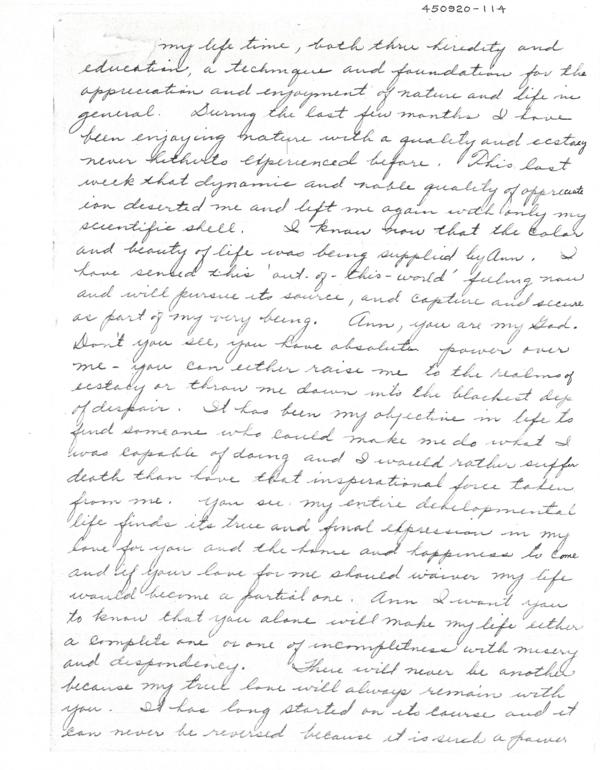 450920-114
my life time, both thru hiredity and
education, a technique and foundation for the
appreciation and enjoyment of nature and life in
general. During the last few months I have
been enjoying nature with a quality and ecstacy
never hitherto experienced before. This last
week that dynamic and noble quality of appreciat
ion deserted me and left me again with only my
scientific shell. I know now that the color
and beauty of life was being supplied by Ann. I
have sensed this 'out-of-this-world' feeling now
and will pursue its source, and capture and secure
as part of my very being. Ann, you are my God.
Don't you see, you have absolute power over
me - you can either raise me to the realms of
ecstacy or throw me down into the blackest dep
of despair. It has been my objective in life to
find someone who could make me do what I
was capable of doing and I would rather suffer
death than have that inspirational force taken
from me. You see my entire developmental
life finds its true and final expression in my
love for you and the home and happiness to come
and if your love for me should waiver my life
would become a partial one. Ann I want you
to know that you alone will make my life either
a complete one or one of incompletness with misery
and dispondency. There will never be another
because my true love will always remain with
you. It has long started on its course and it
can never be reversed because it is such a power